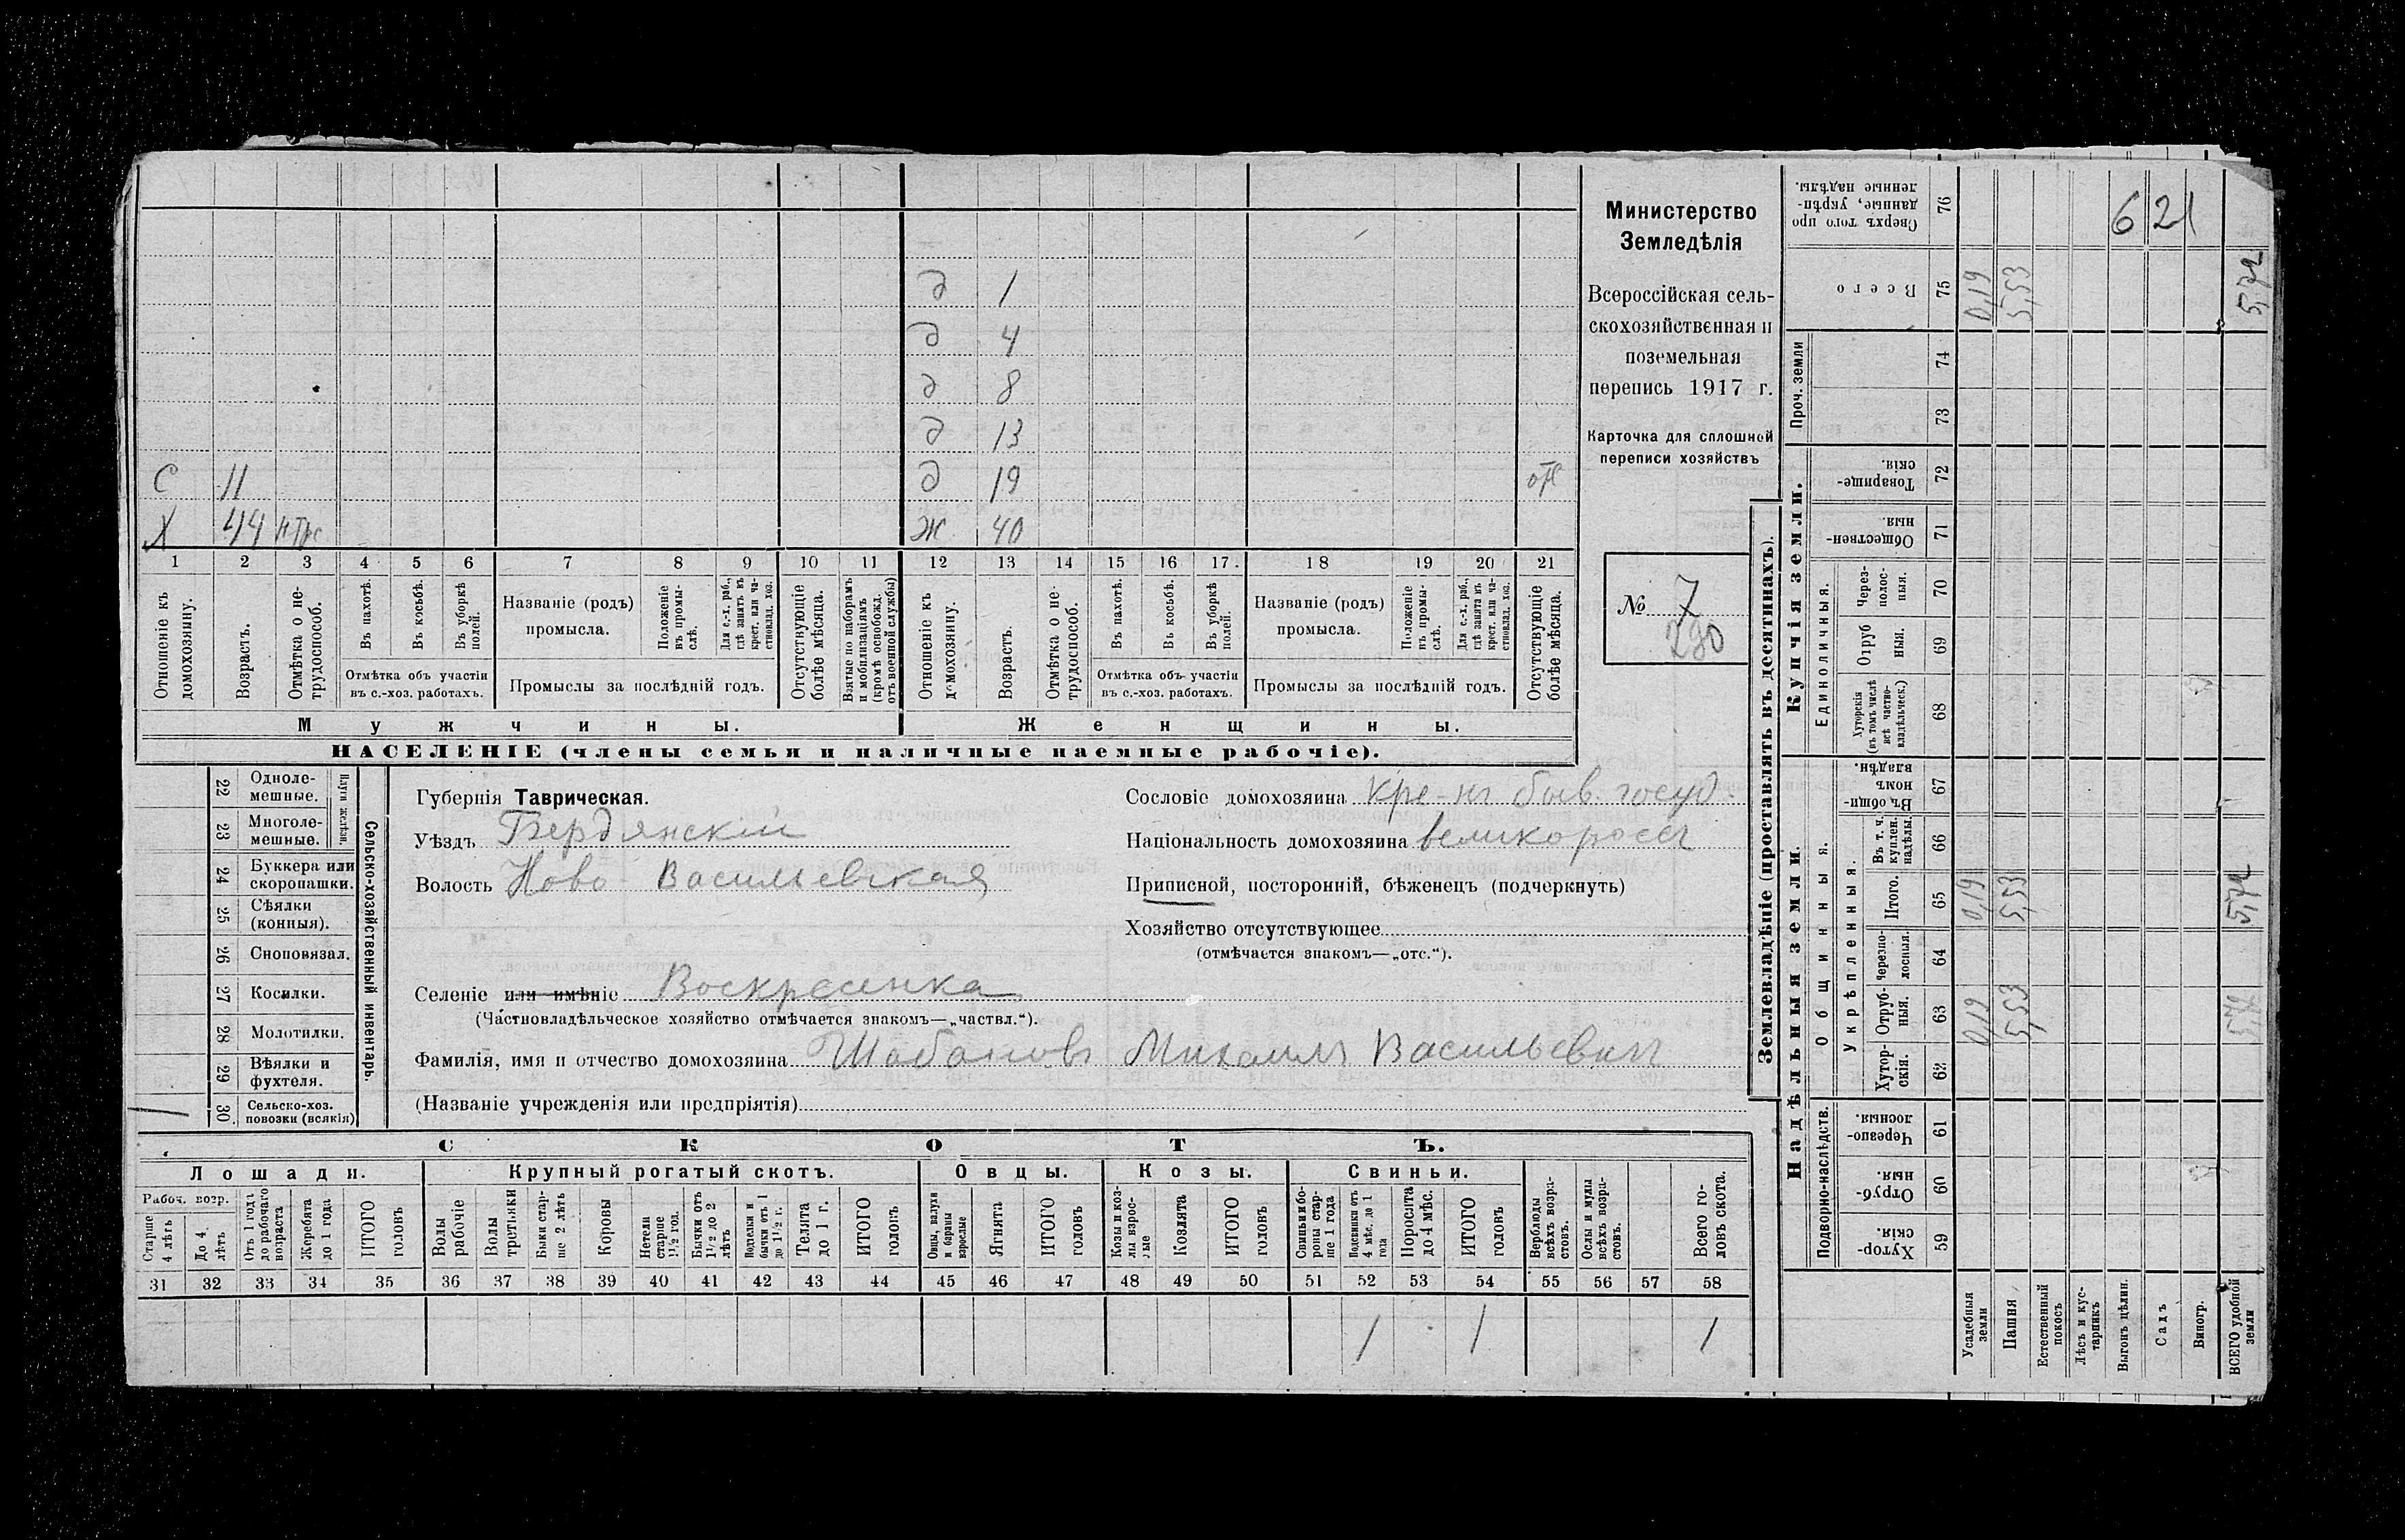 Министерство
Земледѣлія
Всероссійская сель-
скохозяйственная и
поземельная
перепись 1917 г.
Карточка для сплошной
переписи хозяйствъ
№ 7
290
621
д 1
д 4
д 8
д 13
С 11 д 19
Х 44 ж 40
1 2 3 4 5 6 7 8 9 10 11 12 13 14 15 16 17 18 19 20 21
Отношеніе къ домохозяину.
Возрастъ.
Отмѣтка о не-трудоспособ.
Въ пахотѣ.
Въ косьбѣ.
Въ уборкѣ полей.
Отмѣтка объ участіи
въ с.-хоз. работахъ.
Названіе (родъ)
промысла.
Положеніе въ промы-слѣ.
Для с.-х. раб., гдѣ занятъ въ крест. или ча-стновлад. хоз.
Промыслы за послѣдній годъ.
Отсутствующіе болѣе мѣсяца.
Взятые по наборамъ и мобилизаціямъ (кромѣ освобожд. отъ военной службы)
Отношеніе къ домохозяину.
Возрастъ.
Отмѣтка о не-трудоспособ.
Въ пахотѣ.
Въ косьбѣ.
Въ уборкѣ полей.
Отмѣтка объ участіи
въ с.-хоз. работахъ.
Названіе (родъ)
промысла.
Положеніе въ промы-слѣ.
Для с.-х. раб., гдѣ занята въ крест. или ча-стновлад. хоз.
Промыслы за послѣдній годъ.
Отсутствующіе болѣе мѣсяца.
Мужчины. Женщины.
НАСЕЛЕНІЕ (члены семьи и наличные наемные рабочіе).
22 Одноле-мешные.
23 Многоле-мешные.
Плуги желѣзн.
24 Буккера или скоропашки.
25 Сѣялки (конныя).
26 Сноповязал.
27 Косилки.
28 Молотилки.
29 Вѣялки и фухтеля.
30 Сельско-хоз. повозки (всякія)
Сельско-хозяйственный инвентарь.
Губернія Таврическая.
Уѣздъ Бердянскій
Волость Ново-Васильевская
Сословіе домохозяина кре-нъ быв. госуд.
Національность домохозяина великороссъ
Приписной, посторонній, бѣженецъ (подчеркнуть)
Хозяйство отсутствующее
(отмѣчается знакомъ—„отс.“).
Селеніе или имѣніе Воскресенка
(Частновладѣльческое хозяйство отмѣчается знакомъ—„частвл.“).
Фамилія, имя и отчество домохозяина Шабановъ Михаилъ Васильевичъ
(Названіе учрежденія или предпріятія)
СКОТЪ.
Лошади. Крупный рогатый скотъ. Овцы. Козы. Свиньи.
Рабоч. возр.
Старше 4 лѣтъ
До 4 лѣтъ
Отъ 1 года до рабочаго возраста
Жеребята до 1 года
ИТОГО головъ
Волы рабочіе
Волы третьяки
Быки стар-ше 2 лѣтъ
Коровы
Нетели старше 1½ год.
Бычки отъ 1½ до 2 лѣтъ
Подтелки и бычки отъ 1 до 1½ г.
Телята до 1 г.
ИТОГО головъ
Овцы, валухи и бараны взрослые
Ягнята
ИТОГО головъ
Козы и коз-лы взрос-лые
Козлята
ИТОГО головъ
Свиньи и бо-ровы стар-ше 1 года
Подсвинки отъ 4 мѣс. до 1 года
Поросята до 4 мѣс.
ИТОГО головъ
Верблюды всѣхъ возра-стовъ.
Ослы и мулы всѣхъ возра-стовъ.
Всего го-ловъ скота.
31 32 33 34 35 36 37 38 39 40 41 42 43 44 45 46 47 48 49 50 51 52 53 54 55 56 57 58
1 1 1
Землевладѣніе (проставлять въ десятинахъ).
Надѣльныя земли.
Купчія земли.
Проч. земли
Подворно-наслѣдств.
Общинныя.
Укрѣпленныя.
Единоличныя.
Хутор-скія. 59
Отруб-ныя. 60
Черезпо-лосныя. 61
Хутор-скія. 62
Отруб-ныя. 63
Черезпо-лосныя. 64
Итого. 65
Въ т. ч. куплен. надѣлы. 66
Въ общин-номъ владѣн. 67
Хуторскія (въ томъ числѣ всѣ частно-владѣльческ.) 68
Отрубныя. 69
Через-полос-ныя. 70
Обществен-ныя. 71
Товарище-скія. 72
73
74
Всего 75
Сверхъ того про-данные, укрѣп-ленные надѣлы. 76
Усадебныя земли 0,19 0,19 0,19
Пашня 5,53 5,53 5,53
Естественный покосъ
Лѣсъ и кус-тарникъ
Выгонъ цѣлин.
Садъ
Виногр.
ВСЕГО удобной земли 5,72 5,72 5,72